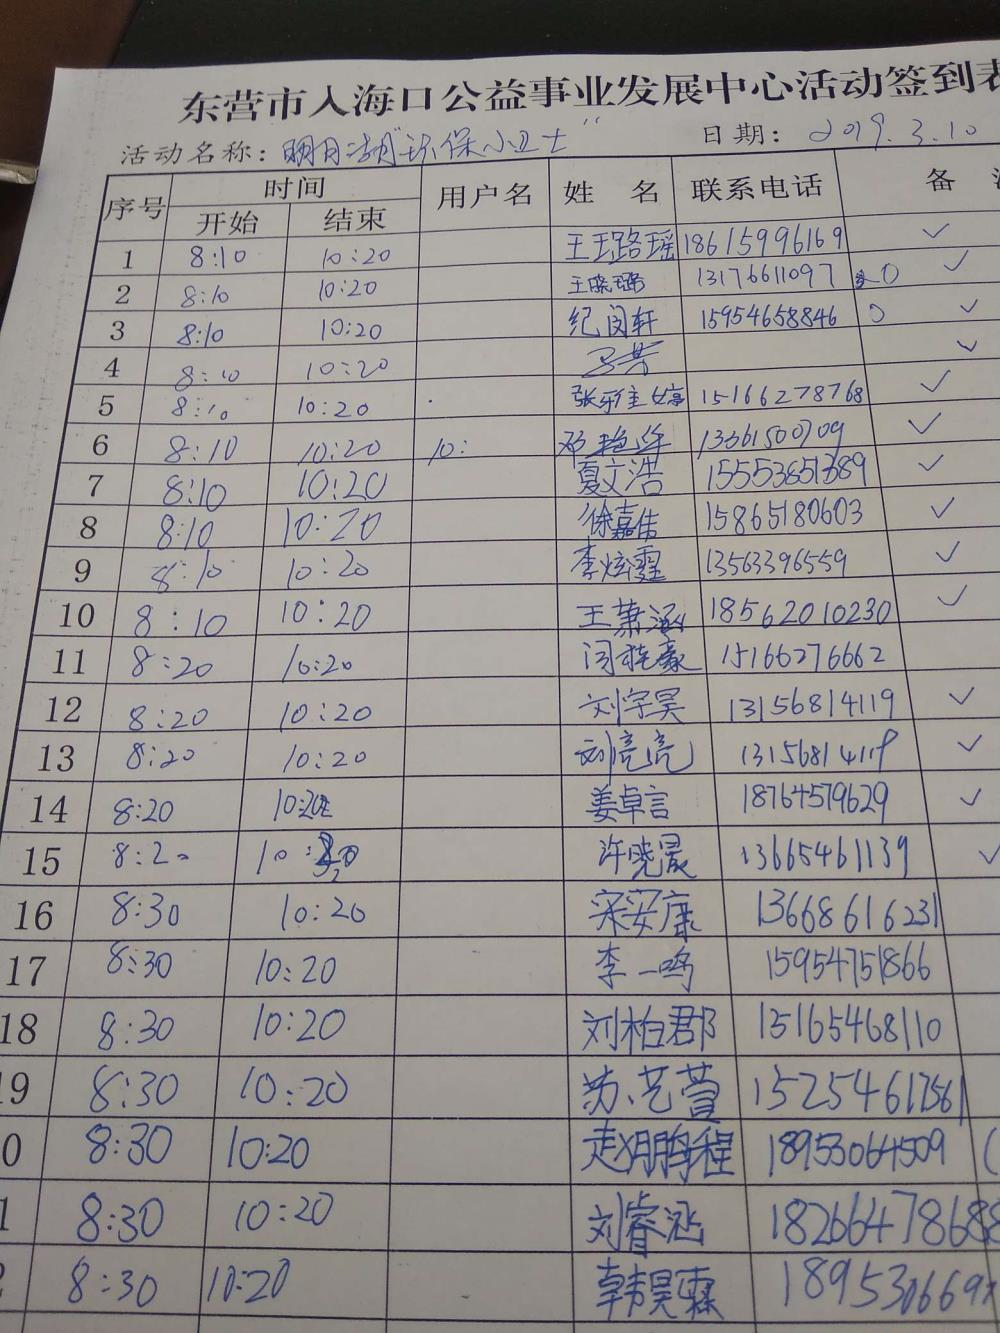 东营市入海口公益事业发展中心活动签到表
活动名称：明月湖“环保小卫士” 日期：2019.3.10
序号 时间 用户名 姓 名 联系电话 备
开始 结束
1 8:10 10:20 王璐瑶 18615996169 ✓
2 8:10 10:20 王晓璐 13176611097 ✓
3 8:10 10:20 纪闵轩 15954658846 ✓
4 8:10 10:20 ✓
5 8:10 10:20 张雅婷 15166278768 ✓
6 8:10 10:20 10: 邓艳华 ✓
7 8:10 10:20 夏文浩 ✓
8 8:10 10:20 徐嘉 15865180603 ✓
9 8:10 10:20 李炫霆 13563396559 ✓
10 8:10 10:20 王萧涵 18562010230 ✓
11 8:20 10:20 闫 豪 15166276662
12 8:20 10:20 刘宇昊 13156814119 ✓
13 8:20 10:20 刘亮亮 13156814119 ✓
14 8:20 10:20 姜卓言 18764579629 ✓
15 8:20 10:20 许晓晨 13665461139 ✓
16 8:30 10:20 宋安康 13668616231
17 8:30 10:20 李一鸣 15954751866
18 8:30 10:20 刘柏郡 15165468110
19 8:30 10:20 苏艺萱 15254617561
0 8:30 10:20 赵鹏程 18953064509
1 8:30 10:20 刘睿涵 18266478688
2 8:30 10:20 韩昊霖 189530669